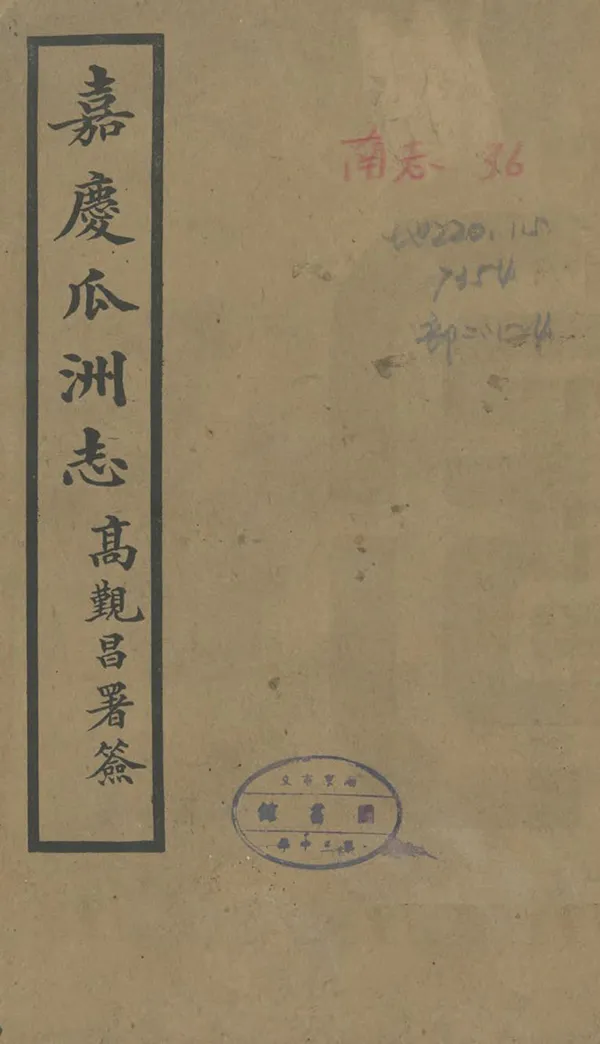 嘉慶瓜洲志
高覲昌署簽
南春 36
220.115
7454
圖書館